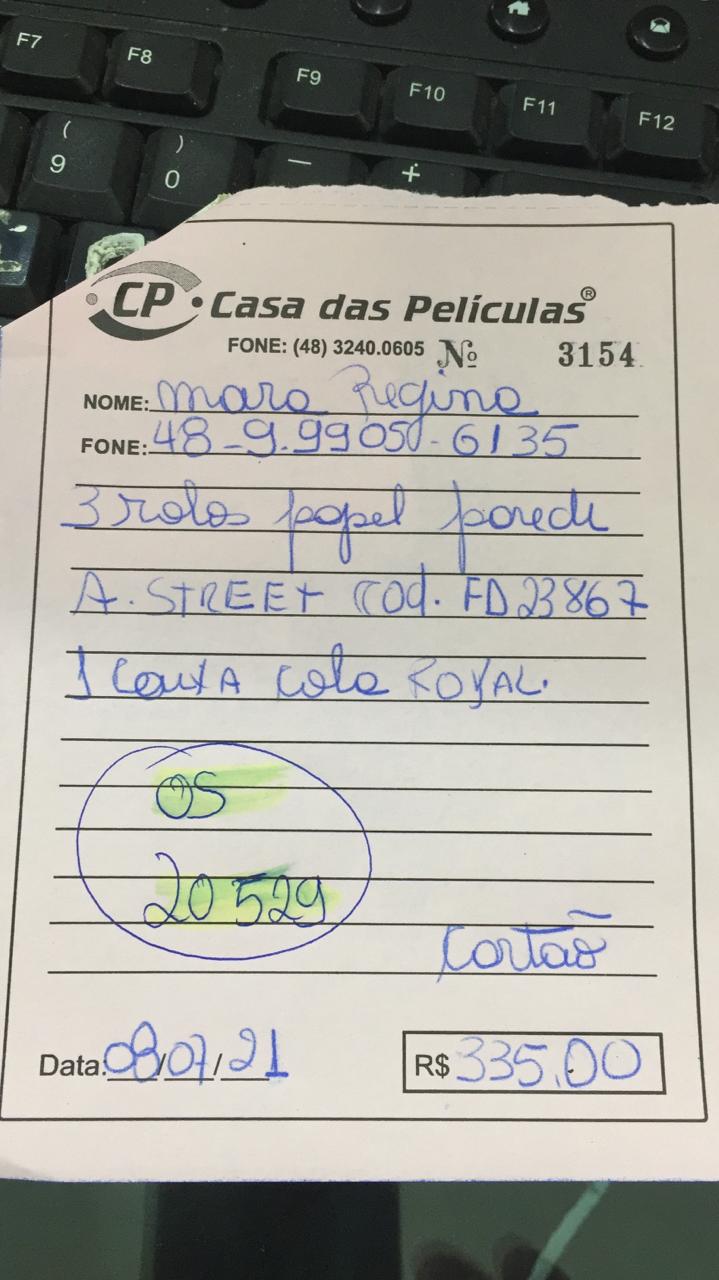 F7 F8 F9 F10 F11 F12
( 9 ) 0 — +
CP • Casa das Películas®
FONE: (48) 3240.0605 Nº 3154
NOME: Mara Regina
FONE: 48-9.9905-6135
3 rolos papel parede
A. STREET Cod. FD23867
1 Caixa cola ROYAL.
OS
20529
Cartão
Data: 08/07/21 R$ 335,00